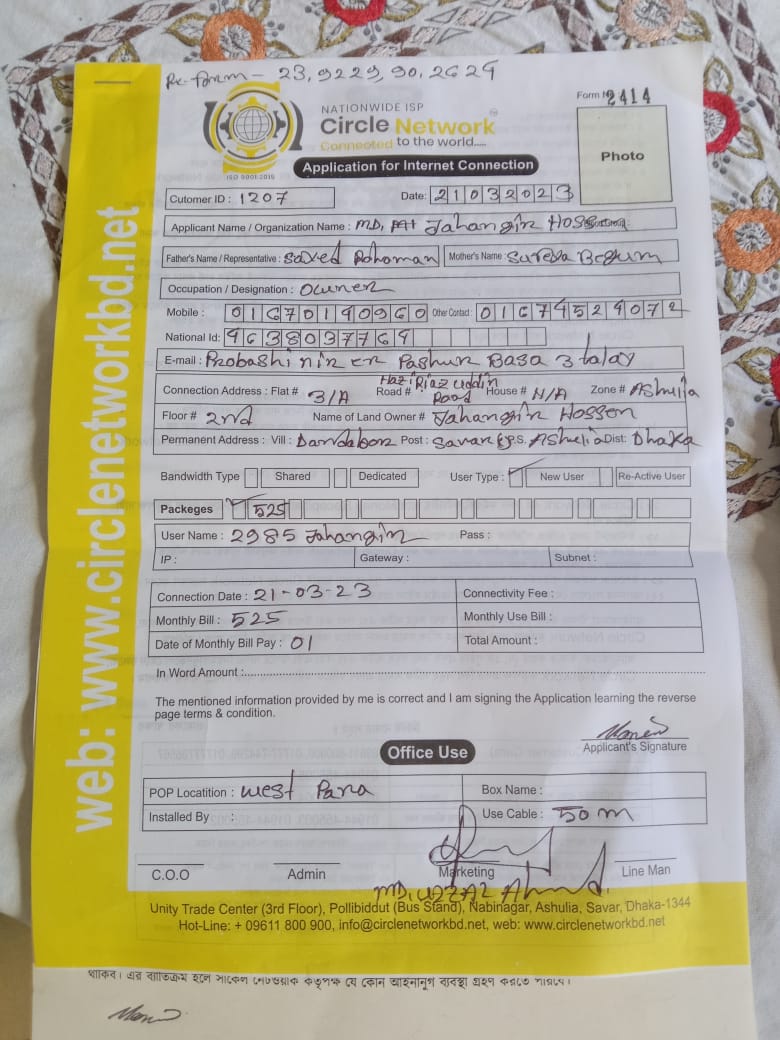 Re-form – 23,9229,90,2624
NATIONWIDE ISP
Circle Network
Connected to the world.....
ISO 9001:2015
Form № 2414
Photo
Application for Internet Connection
Cutomer ID : 1207 Date: 21032023
Applicant Name / Organization Name : MD, Jahangir Hossen
Father's Name / Representative : Sayed Rohoman Mother's Name : Sureya Begum
Occupation / Designation : Owner
Mobile : 01670190960 Other Contact : 01674529072
National Id: 4638037764
E-mail : Probashi nir er Pashur Basa 3 talay
Connection Address : Flat # 3/A Road # Hazi Riaz uddin Road House # N/A Zone # Ashulia
Floor # 2nd Name of Land Owner # Jahangir Hossen
Permanent Address : Vill : Dandabor Post : Savar P.S. Ashulia Dist: Dhaka
Bandwidth Type Shared Dedicated User Type : New User Re-Active User
Packeges 525
User Name : 2985 Jahangir Pass :
IP : Gateway : Subnet :
Connection Date : 21-03-23 Connectivity Fee :
Monthly Bill : 525 Monthly Use Bill :
Date of Monthly Bill Pay : 01 Total Amount :
In Word Amount :
The mentioned information provided by me is correct and I am signing the Application learning the reverse
page terms & condition.
Applicant's Signature
Office Use
POP Locatition : West Para Box Name :
Installed By : Use Cable : 50 m
C.O.O Admin Marketing Line Man
MD, UZZAL Ahmed
Unity Trade Center (3rd Floor), Pollibiddut (Bus Stand), Nabinagar, Ashulia, Savar, Dhaka-1344
Hot-Line: + 09611 800 900, info@circlenetworkbd.net, web: www.circlenetworkbd.net
web: www.circlenetworkbd.net
থাকিব। এর ব্যতিক্রম হলে সার্কেল নেটওয়ার্ক কতৃপক্ষ যে কোন আইনানুগ ব্যবস্থা গ্রহণ করতে পারবে।